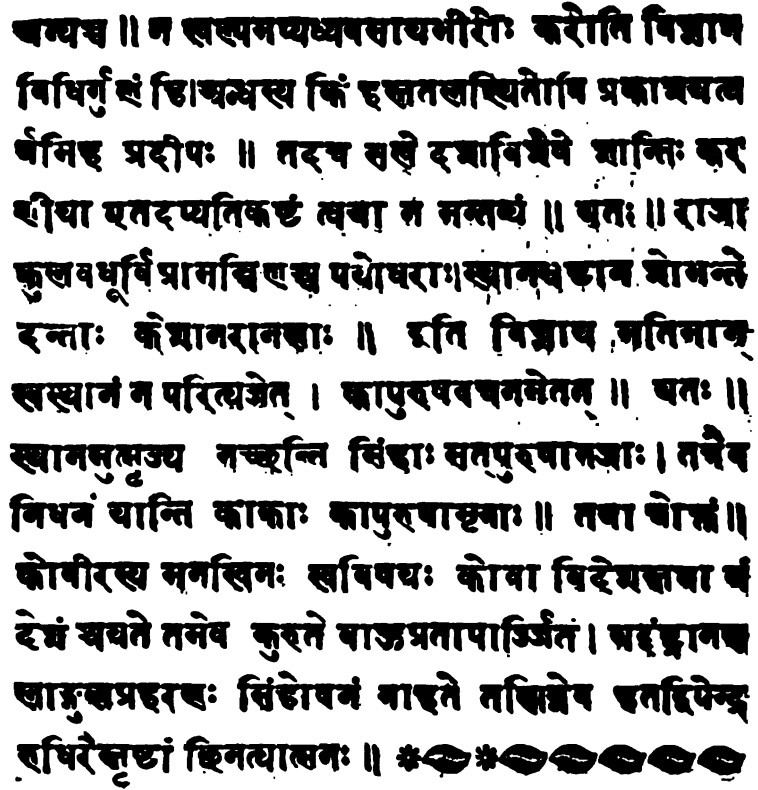 अन्यच्च ॥ न स्वल्पमप्यध्यवसायभीरोः करोति विज्ञान
विधिर्गुणं हि।अन्धस्य किं हस्ततलस्थितोपि प्रकाशयत्य
र्थमिह प्रदीपः ॥ तदत्र सखे दशाविशेषे शान्तिः कर
णीया एतदप्यतिकष्टं त्वया न मन्तव्यं ॥ यतः ॥ राजा
कुलवधूर्विप्रामन्त्रिणश्च पयोधराः।स्थानभ्रष्टान शोभन्ते
दन्ताः केशानरानखाः ॥ इति विज्ञाय मतिमान्
स्वस्थानं न परित्यजेत् । कापुरुषवचनमेतत् ॥ यतः ॥
स्थानमुत्सृज्य गच्छन्ति सिंहाः सत्पुरुषागजाः । तत्रैव
निधनं यान्ति काकाः कापुरुषामृगाः ॥ तथा चोक्तं॥
कोवीरस्य मनस्विनः स्वविषयः कोवा विदेशस्तथा यं
देशं श्रयते तमेव कुरुते बाहुप्रतापार्ज्जितं। यद्दंष्ट्रानख
लाङ्गुलप्रहरणः सिंहोवनं गाहते तस्मिन्नेव हतद्विपेन्द्र
रुधिरैस्तृष्णां छिनत्यात्मनः ॥